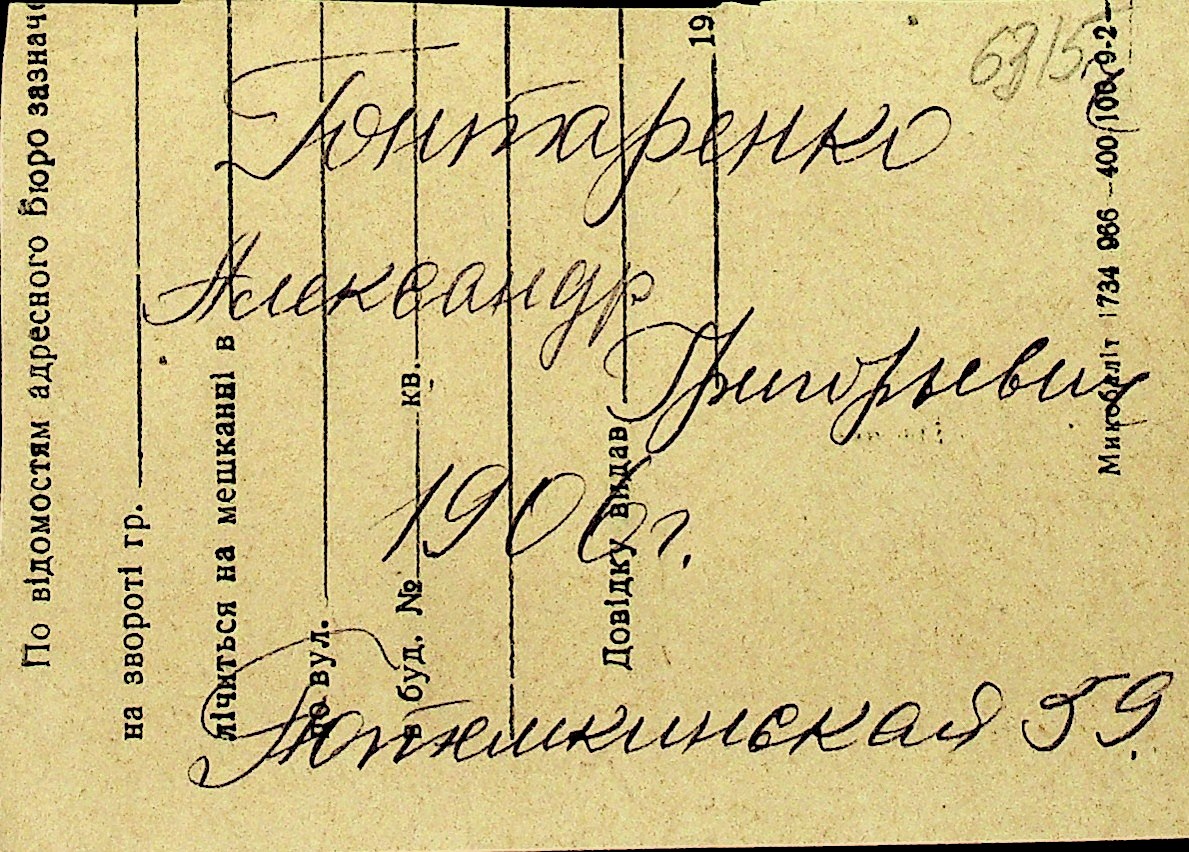 6315
Гонтаренко
Александр
Григорьевич
1906 г.
Потемкинская 59.
По відомостям адресного Бюро зазначе
на звороті гр.
лічиться на мешканні в
по вул.
в буд. № кв.
Довідку видав
19
Микобліт 1734 966—400/100, 9-2—